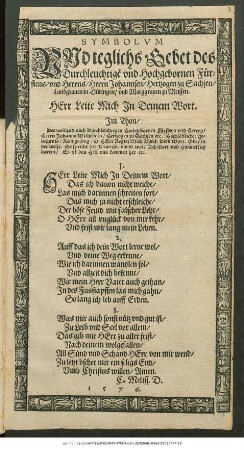 SYMBOLVM
VNd teglichs Gebet des
Durchleuchtigē vnd Hochgebornen Für-
stens/vnd Herrns/Herrn Johannsen/Hertzogen zu Sachsen/
Landgrauen in Düringen/vnd Marggrauen zu Meissen.
HErr Leite Mich In Deinem Wort.
Im Thon/
1.
HErr Leite Mich In Deinem Wort/
Das ich dauon nicht weiche/
Las mich darinnen schreiten fort/
Das mich ja nicht erschleiche/
Der böse Feind mit falscher Lehr/
O HERR all vnglück von mir kehr/
Vnd frist mir lang mein Leben.
2.
Auff das ich dein Wort lerne wol/
Vnd deine Weg erkenne/
Wie ich darinnen wandeln sol/
Vnd allzeit dich bekenne/
Wie mein Herr Vater auch gethan/
In des Fusstapffen las mich gahn/
So lang ich leb auff Erden.
3.
Was mir auch sonst nütz vnd gut ist/
Zu Leib vnd Seel vor allem/
Das gib mir HErr zu aller frist/
Nach deinem wolgefallen/
All Sünd vnd Schand HErr von mir wend/
Zu letzt bscher mir ein seligs End/
Vmb Christus willen/Amen.
C. Meliss. D.
1576.